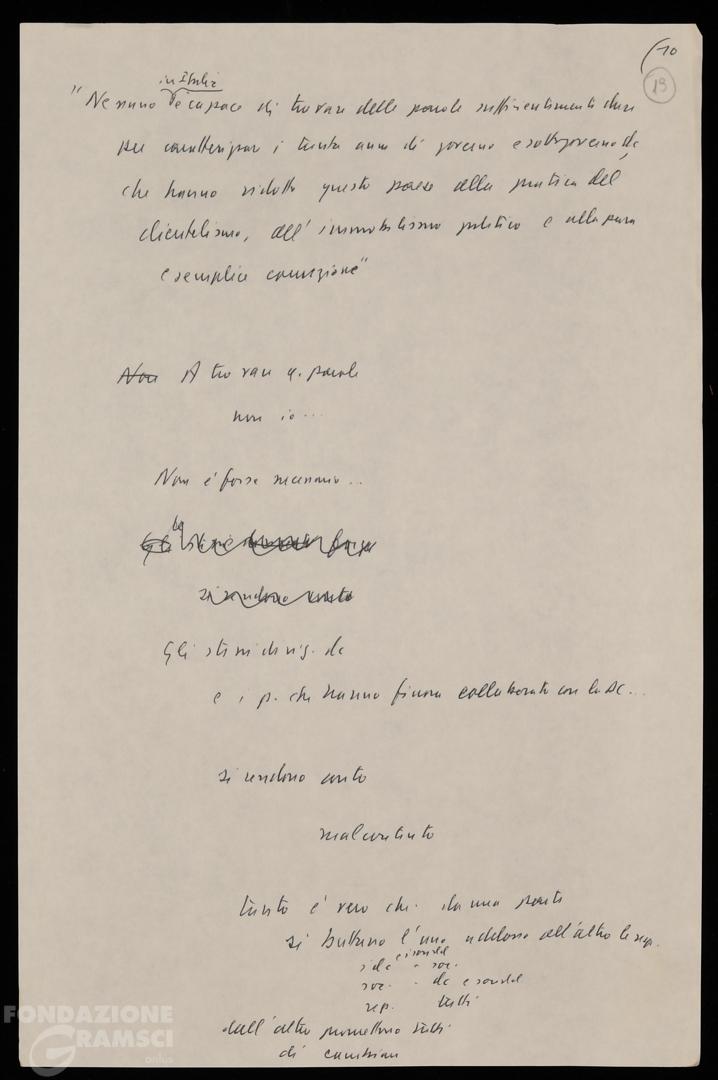 10
19
in Italia
"Nessuno è capace di trovare delle parole sufficientemente dure
per caratterizzare i trenta anni di governo e sottogoverno dc,
che hanno ridotto questo paese alla pratica del
clientelismo, all'immobilismo politico e alla pura
e semplice corruzione"
Non A trovare q. parole
non io...
Non è forse necessario..
si rendono conto
Gli stessi dirig. dc
e i p. che hanno finora collaborato con la DC...
si rendono conto
malcontento
tanto è vero che da una parte
si buttano l'uno addosso all'altro le resp.
i dc - soc.
soc. - dc e sociald
rep. tutti
dall'altro promettono tutti
di cambiare
FONDAZIONE
GRAMSCI
onlus